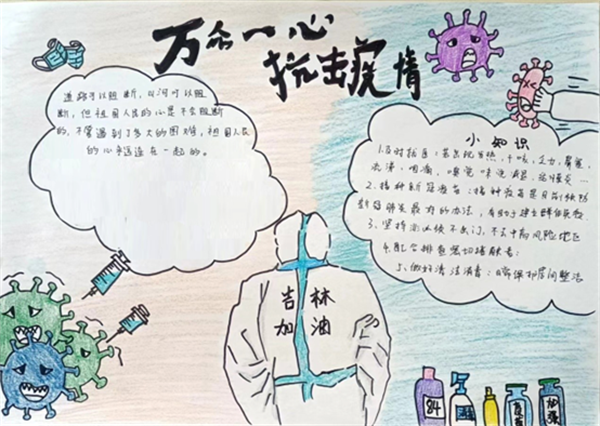 万众一心
抗击疫情
道路可以阻断，山河可以阻
断，但祖国人民的心是不会阻断
的，不管遇到了多大的困难，祖国人民
的心永远连在一起的。
小知识
1.及时就医：若出现发热，干咳，乏力，鼻塞，
流涕，咽痛，嗅觉味觉减退，结膜炎
2.接种新冠疫苗：接种疫苗是目前预防
新冠肺炎最有效的办法，有助于建立群体免疫
3.坚持非必须不出门，不去中高风险地区
4.配合排查密切接触者：
5.做好清洁消毒：日常保和房间整洁
吉林
加油
84